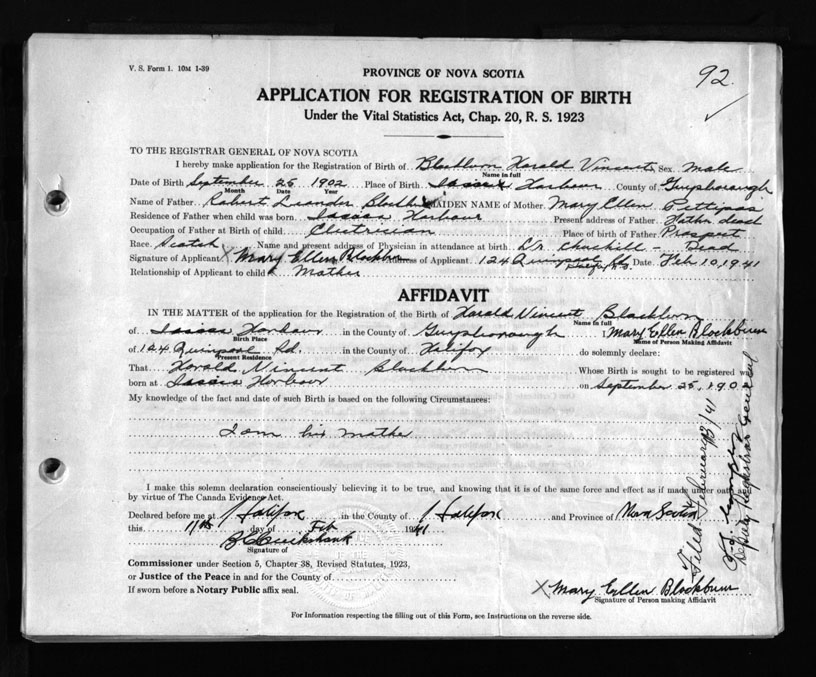 V. S. Form 1. 10M 1-39
92.
PROVINCE OF NOVA SCOTIA
APPLICATION FOR REGISTRATION OF BIRTH
Under the Vital Statistics Act, Chap. 20, R. S. 1923
TO THE REGISTRAR GENERAL OF NOVA SCOTIA
I hereby make application for the Registration of Birth of Blackburn Harald Vincent Sex Male
Name in full
Date of Birth September 25 1902 Place of Birth Isaacs Harbour County of Guysborough
Month Date Year
Name of Father Robert Leander Blackburn MAIDEN NAME of Mother Mary Ellen Pettipas
Residence of Father when child was born Isaacs Harbour Present address of Father Father dead
Occupation of Father at Birth of child Place of birth of Father Prospect
Race Scotch Name and present address of Physician in attendance at birth Dr. Churchill - Dead
Signature of Applicant X Mary Ellen Blackburn Address of Applicant 124 Quinpool Rd Date Feb 10, 1941
Halifax N.S.
Relationship of Applicant to child Mother
AFFIDAVIT
IN THE MATTER of the application for the Registration of the Birth of Harald Vincent Blackburn
Name in full
of Isaacs Harbour in the County of Guysborough I Mary Ellen Blackburn
Birth Place Name of Person making Affidavit
of 124 Quinpool Rd. in the County of Halifax do solemnly declare:
Present Residence
That Harald Vincent Blackburn Whose Birth is sought to be registered was
born at Isaacs Harbour on September 25, 1902
My knowledge of the fact and date of such Birth is based on the following Circumstances:
I am his Mother
I make this solemn declaration conscientiously believing it to be true, and knowing that it is of the same force and effect as if made under oath and
by virtue of The Canada Evidence Act.
Declared before me at Halifax in the County of Halifax and Province of Nova Scotia
this 11th day of Feb 1941
Signature of
Commissioner under Section 5, Chapter 38, Revised Statutes, 1923,
or Justice of the Peace in and for the County of
If sworn before a Notary Public affix seal.
X Mary Ellen Blackburn
Signature of Person making Affidavit
For Information respecting the filling out of this Form, see Instructions on the reverse side.
Filed February 13/41
Deputy Registrar General